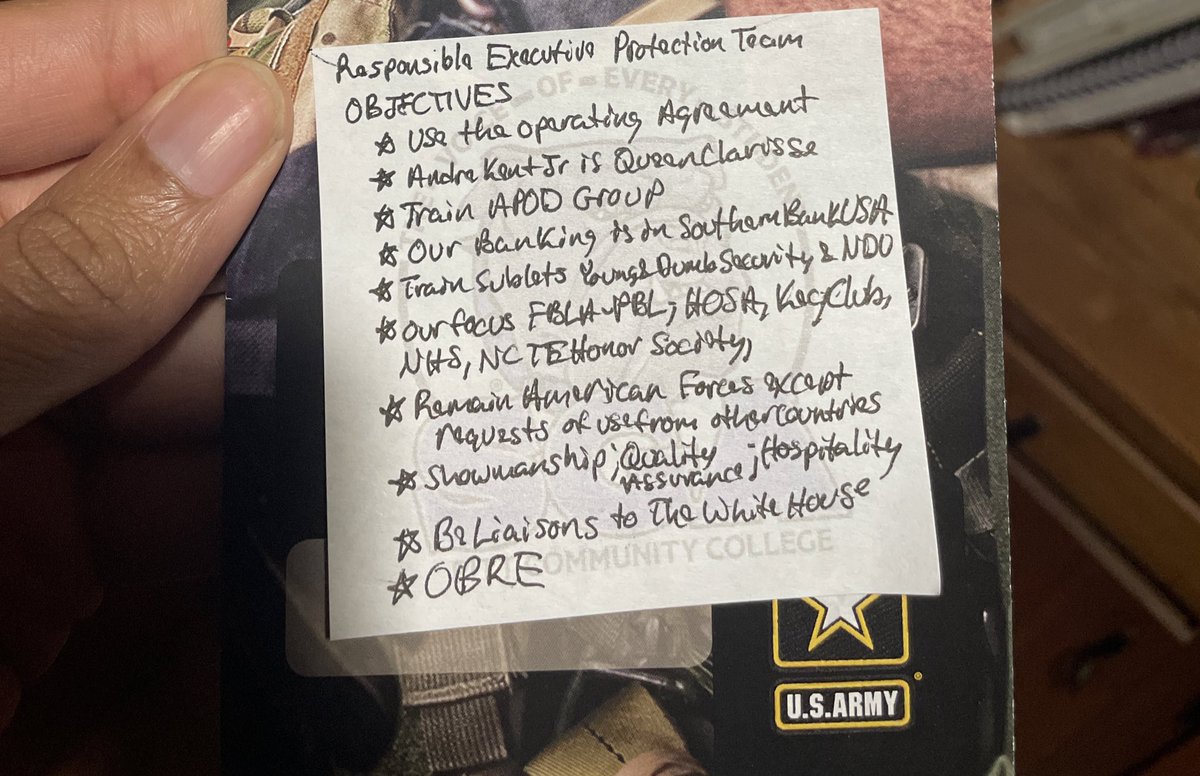 Responsible Executive Protection Team
OBJECTIVES
☆ Use the operating Agreement
☆ Andre Kent Jr is QueenClarisse
☆ Train APOD Group
☆ Our Banking is in SouthernBankUSA
☆ Train Sublets Young&DumbSecurity & NDO
☆ Our focus FBLA-PBL; HOSA, KeyClub,
NHS, NCTEHonor Society,
☆ Remain American Forces except
requests of use from other countries
☆ Showmanship; Quality Assurance; Hospitality
☆ Be Liaisons to The White House
☆ OBRE
OF EVERY
COMMUNITY COLLEGE
U.S.ARMY